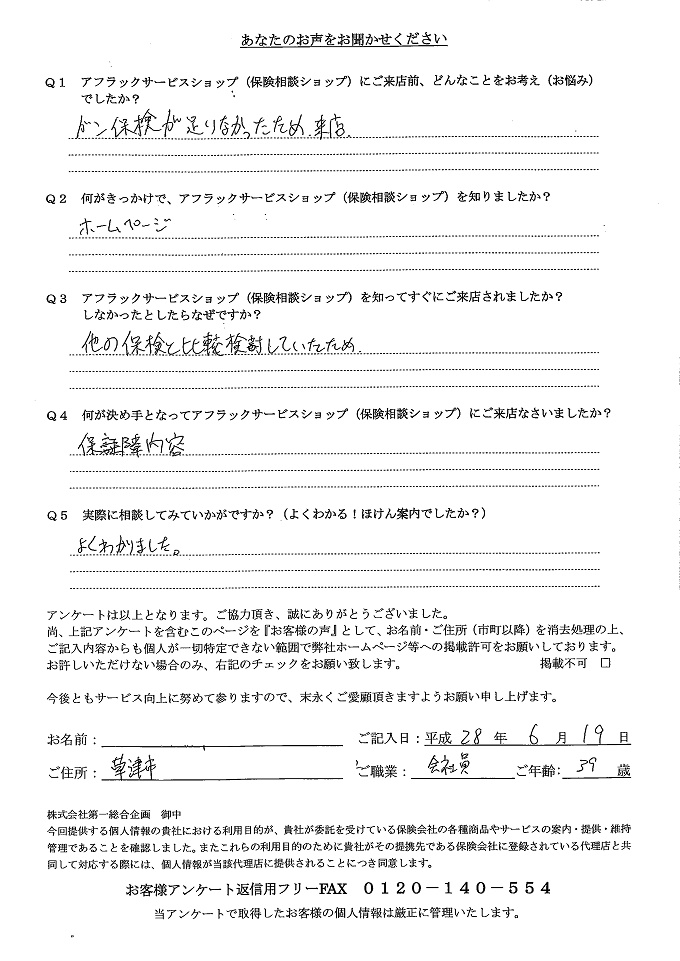 あなたのお声をお聞かせください
Q1 アフラックサービスショップ（保険相談ショップ）にご来店前、どんなことをお考え（お悩み）
でしたか？
ガン保検が足りなかったため、来店
Q2 何がきっかけで、アフラックサービスショップ（保険相談ショップ）を知りましたか？
ホームページ
Q3 アフラックサービスショップ（保険相談ショップ）を知ってすぐにご来店されましたか？
しなかったとしたらなぜですか？
他の保検と比較検討していたため.
Q4 何が決め手となってアフラックサービスショップ（保険相談ショップ）にご来店なさいましたか？
保障内容
Q5 実際に相談してみていかがですか？（よくわかる！ほけん案内でしたか？）
よくわかりました。
アンケートは以上となります。ご協力頂き、誠にありがとうございました。
尚、上記アンケートを含むこのページを『お客様の声』として、お名前・ご住所（市町以降）を消去処理の上、
ご記入内容からも個人が一切特定できない範囲で弊社ホームページ等への掲載許可をお願いしております。
お許しいただけない場合のみ、右記のチェックをお願い致します。 掲載不可 □
今後ともサービス向上に努めて参りますので、末永くご愛顧頂きますようお願い申し上げます。
お名前： ご記入日：平成 28 年 6 月 19 日
ご住所： 草津市 ご職業： 会社員 ご年齢： 39 歳
株式会社第一総合企画 御中
今回提供する個人情報の貴社における利用目的が、貴社が委託を受けている保険会社の各種商品やサービスの案内・提供・維持
管理であることを確認しました。またこれらの利用目的のために貴社がその提携先である保険会社に登録されている代理店と共
同して対応する際には、個人情報が当該代理店に提供されることにつき同意します。
お客様アンケート返信用フリーFAX 0120-140-554
当アンケートで取得したお客様の個人情報は厳正に管理いたします。